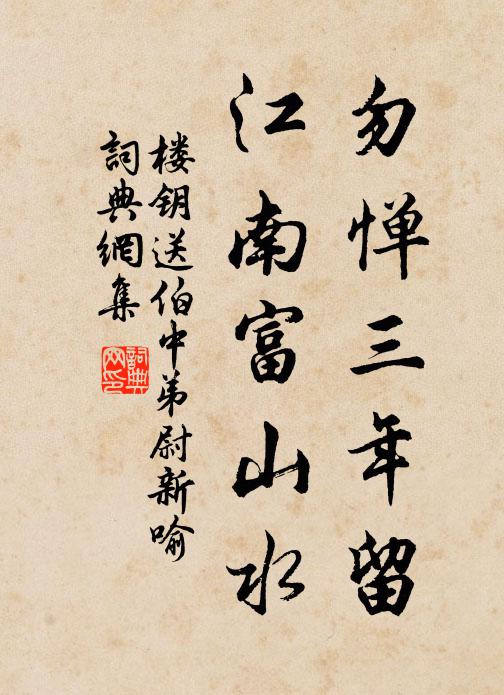 勿惮三年留
江南富山水
楼钥送伯中弟尉新喻
詞典網集
詞典网印